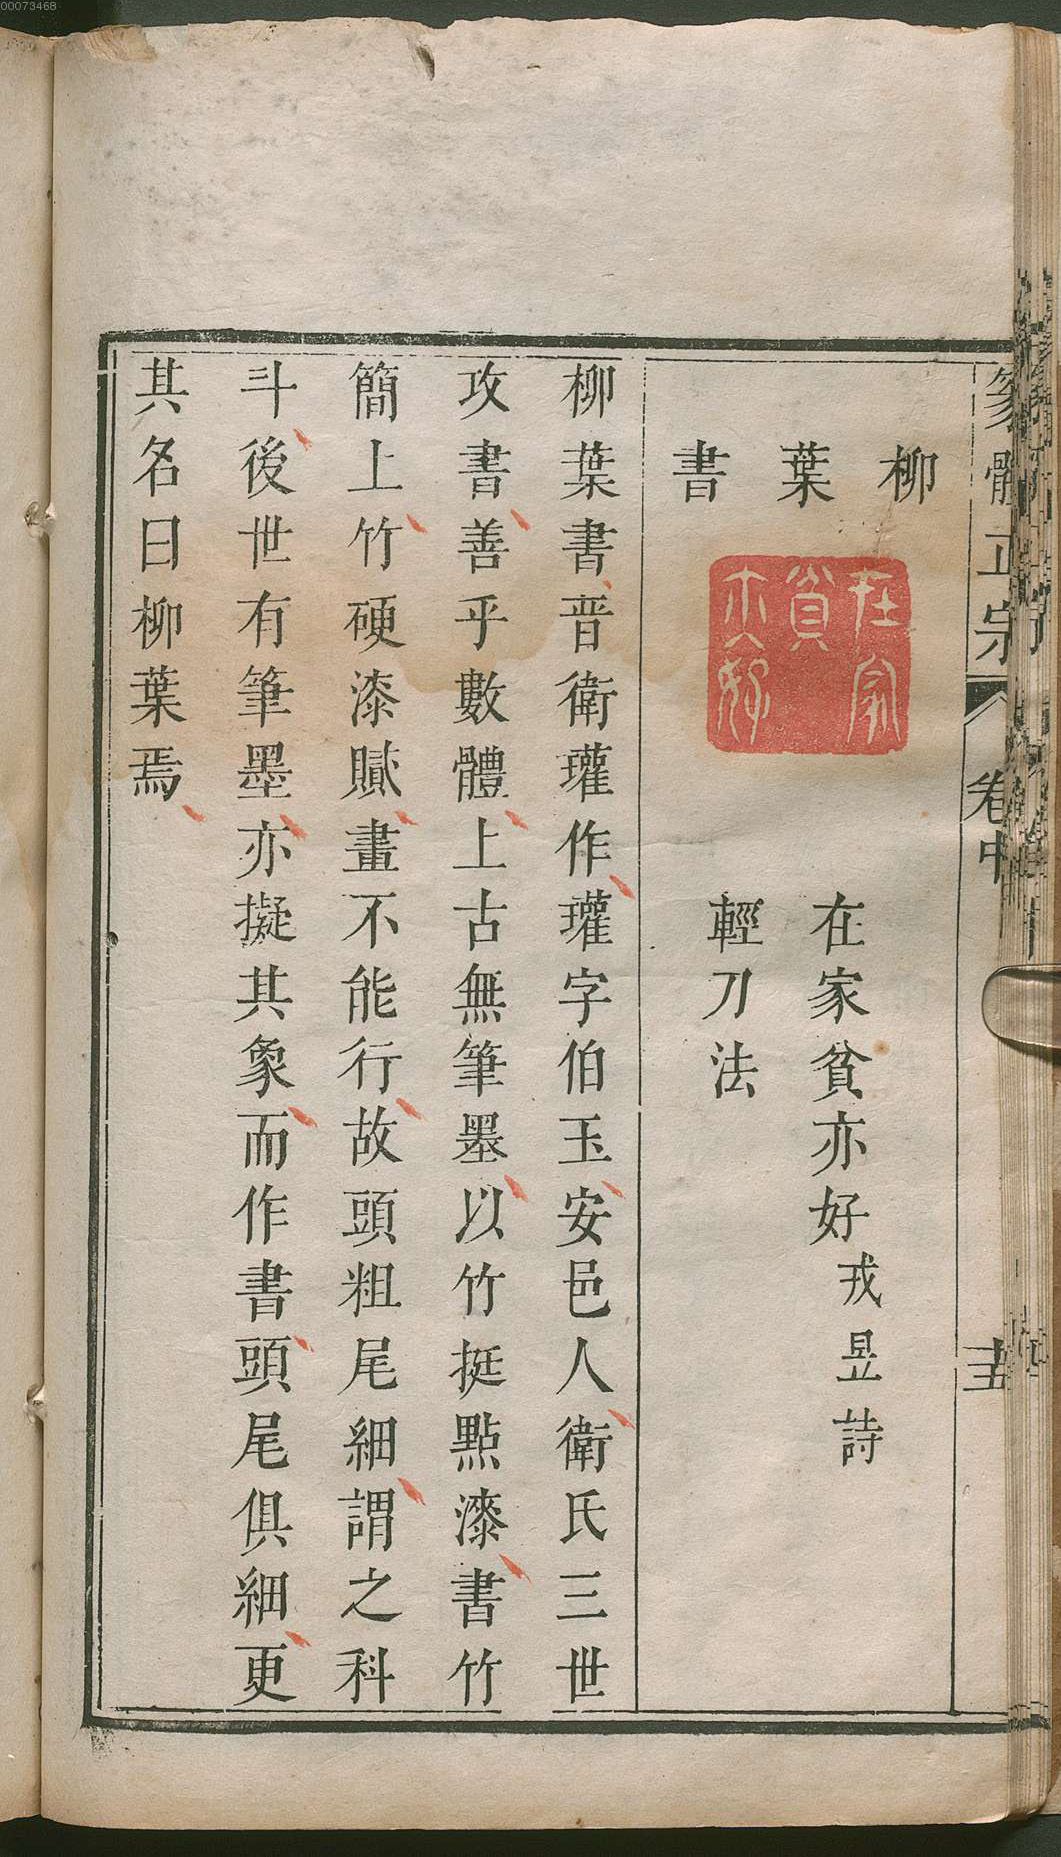 00073468
篆體正宗
卷中
柳葉書
在家貧亦好
在家貧亦好戎昱詩
輕刀法
柳葉書晉衛瓘作瓘字伯玉安邑人衛氏三世
攻書善乎數體上古無筆墨以竹挺點漆書竹
簡上竹硬漆膩畫不能行故頭粗尾細謂之科
斗後世有筆墨亦擬其象而作書頭尾俱細更
其名曰柳葉焉